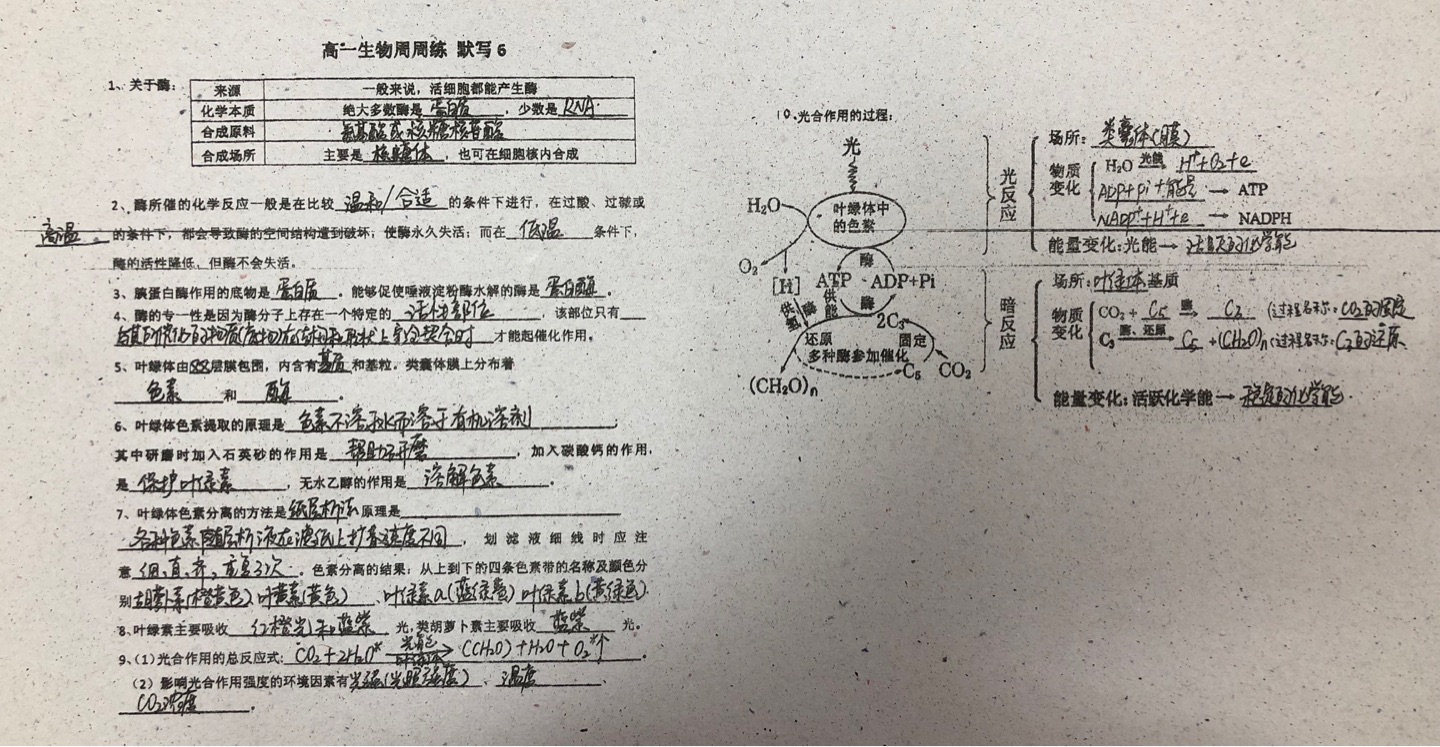 高一生物周周练 默写6
1、关于酶:
来源 一般来说，活细胞都能产生酶
化学本质 绝大多数酶是 蛋白质 ，少数是 RNA
合成原料 氨基酸或核糖核苷酸
合成场所 主要是 核糖体 ，也可在细胞核内合成
2、酶所催的化学反应一般是在比较 温和/合适 的条件下进行，在过酸、过碱或
高温 的条件下，都会导致酶的空间结构遭到破坏，使酶永久失活；而在 低温 条件下，
酶的活性降低，但酶不会失活。
3、胰蛋白酶作用的底物是 蛋白质 。能够促使唾液淀粉酶水解的酶是 蛋白酶 。
4、酶的专一性是因为酶分子上存在一个特定的 活性部位 ，该部位只有
与其所催化的物质(底物)在结构和形状上完全契合时 才能起催化作用。
5、叶绿体由双层膜包围，内含有基质和基粒。类囊体膜上分布着
色素 和 酶 。
6、叶绿体色素提取的原理是 色素不溶于水而溶于有机溶剂 ;
其中研磨时加入石英砂的作用是 帮助研磨 ，加入碳酸钙的作用，
是 保护叶绿素 ，无水乙醇的作用是 溶解色素 。
7、叶绿体色素分离的方法是 纸层析法 原理是
各种色素随层析液在滤纸上扩散速度不同 ，划滤液细线时应注
意 细、直、齐，重复3次 。色素分离的结果：从上到下的四条色素带的名称及颜色分
别 胡萝卜素(橙黄色) 叶黄素(黄色) 、叶绿素a(蓝绿色) 叶绿素b(黄绿色).
8、叶绿素主要吸收 红橙光和蓝紫 光,类胡萝卜素主要吸收 蓝紫 光。
9、(1)光合作用的总反应式: CO₂+2H₂O* 光能 叶绿体 → (CH₂O)+H₂O+O₂*↑ 。
(2) 影响光合作用强度的环境因素有 光强(光照强度) 、 温度 、
CO₂浓度 。
10、光合作用的过程:
光
H₂O
叶绿体中的色素
O₂
[H]
酶
ATP ADP+Pi
供氢 酶 供能 酶
2C₃
还原 固定
多种酶参加催化
C₅ CO₂
(CH₂O)n
光反应
场所: 类囊体(膜)
物质变化
H₂O 光能→ H⁺+O₂+e
ADP+Pi+能量 → ATP
NADP⁺+H⁺+e → NADPH
能量变化:光能→ 活跃的化学能
暗反应
场所:叶绿体基质
物质变化
CO₂ + C₅ 酶→ C₃ (过程名称: CO₂的固定
C₃ 酶、还原→ C₅ +(CH₂O)n (过程名称: C₃的还原
能量变化: 活跃化学能 → 稳定的化学能.